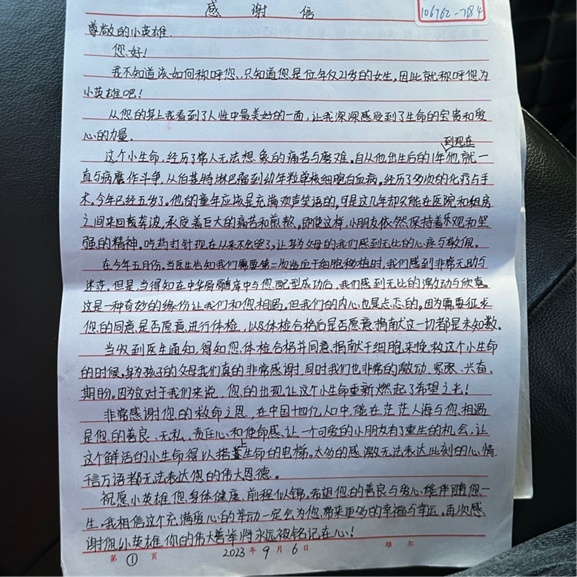 感谢信
106762-7184
尊敬的小英雄
您好!
我不知道该如何称呼您,只知道您是位年仅21岁的女生,因此就称呼您为
小英雄吧!
从您的身上我看到了人性中最美好的一面,让我深深感受到了生命的宝贵和爱
心的力量.
到现在
这个小生命,经历了常人无法想象的痛苦与磨难。自从他出生后的1年他,就一
直与病魔作斗争,从伯基特淋巴瘤到幼年粒单核细胞白血病,经历了多次的化疗与手
术,今年已经五岁了,他的童年应该是充满欢声笑语的,可是这几年却只能在医院和租房
之间来回奔波,承受着巨大的痛苦和煎熬,即使这样,小朋友依然保持着乐观和坚
强的精神,吃药打针现在从来不会哭了,让身为父母的我们感到无比的心疼与敬佩。
在今年五月份,当医生告知我们需要第二次造血干细胞移植时,我们感到非常无助与
迷茫,但是,当得知在中华骨髓库中与您配型成功后,我们感到无比的激动与欣喜,
这是一种奇妙的缘份让我们和您相遇,但我们的内心也是忐忑的,因为需要征求
您的同意,是否愿意进行体检,以及体检合格后是否愿意捐献这一切都是未知数,
当收到医生通知,得知您体检合格并同意捐献干细胞来挽救这个小生命
的时候,身为孩子的父母我们真的非常感谢,同时我们也非常的激动、紧张、兴奋、
期盼。因为这对于我们来说,您的出现让这个小生命重新燃起了希望之光!
非常感谢您的救命之恩,在中国十四亿人口中,能在茫茫人海与您相遇
是您的善良、无私、责任心和使命感,让一个可爱的小朋友有了重生的机会,让
这个鲜活的小生命得以搭上生命的电梯。太多的感激无法表达此刻的心情,
千言万语都无法表达您的伟大恩德。
祝愿小英雄您身体健康,前程似锦,希望您的善良与爱心能伴随您一
生,我相信这个充满爱心的举动一定会为您带来更多的幸福与幸运。再次感
谢您小英雄你的伟大善举将永远被铭记在心!
第①页 2023年9月6日